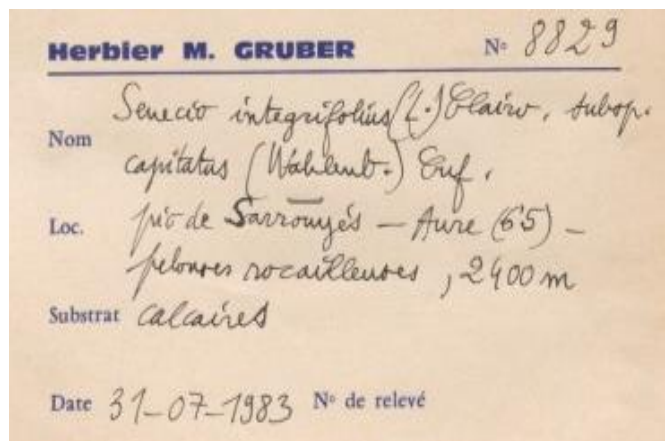 Herbier M. GRUBER N° 8829
Senecio integrifolius (L.) Clairv. subsp.
Nom
capitatus (Wahlenb.) Cuf.
Loc. pic de Sarrouyés — Aure (65) —
pelouses rocailleuses, 2400 m
Substrat calcaires
Date 31-07-1983 N° de relevé